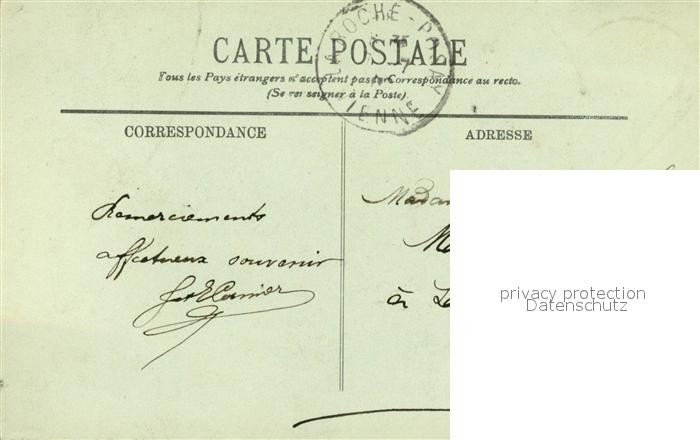 CARTE POSTALE
Tous les Pays étrangers n'acceptent pas la Correspondance au recto.
(Se renseigner à la Poste)
LA ROCHE-POSAY
VIENNE
CORRESPONDANCE
ADRESSE
Remerciements
affectueux souvenir
Madam
à
privacy protection
Datenschutz